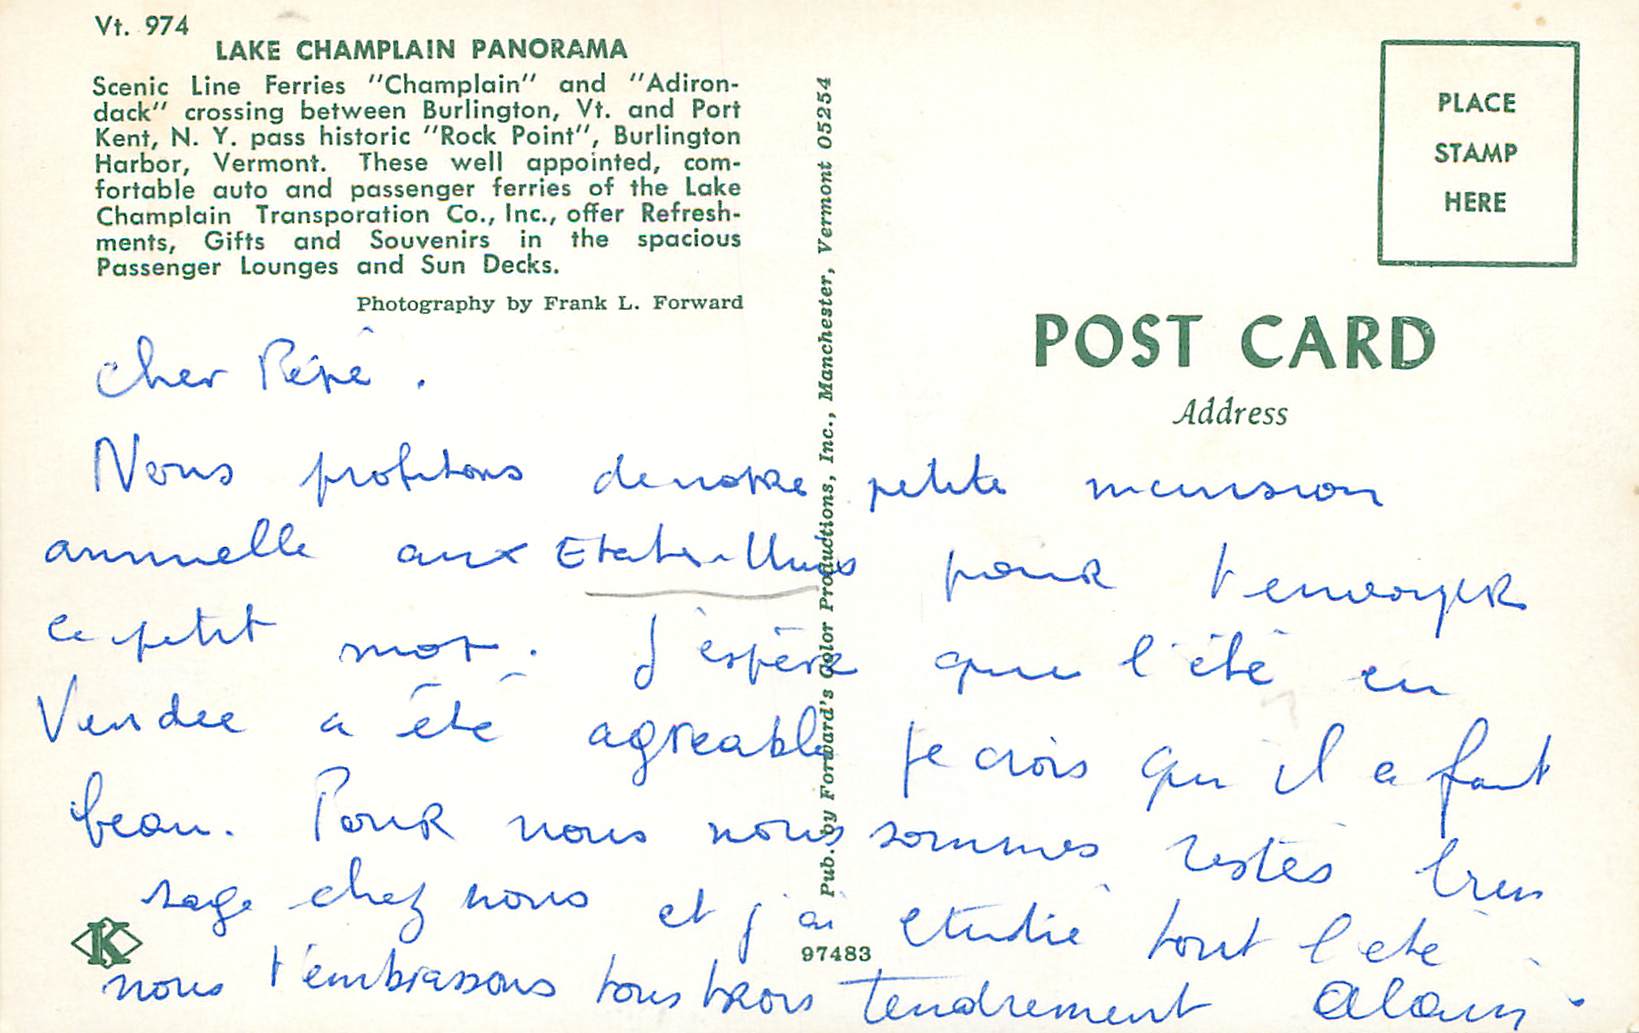 Vt. 974
LAKE CHAMPLAIN PANORAMA
Scenic Line Ferries "Champlain" and "Adiron-
dack" crossing between Burlington, Vt. and Port
Kent, N. Y. pass historic "Rock Point", Burlington
Harbor, Vermont. These well appointed, com-
fortable auto and passenger ferries of the Lake
Champlain Transporation Co., Inc., offer Refresh-
ments, Gifts and Souvenirs in the spacious
Passenger Lounges and Sun Decks.
Photography by Frank L. Forward
Pub. by Forward's Color Productions, Inc., Manchester, Vermont 05254
PLACE
STAMP
HERE
POST CARD
Address
Cher Pépé.
Nous profitons de notre petite incursion
annuelle aux Etats-Unis pour t'envoyer
ce petit mot. J'espère que l'été en
Vendée a été agréable je crois qu'il a fait
beau. Pour nous nous sommes restés bien
sage chez nous et j'ai etudié tout l'eté
nous t'embrassons tous trois tendrement Alain
K
97483